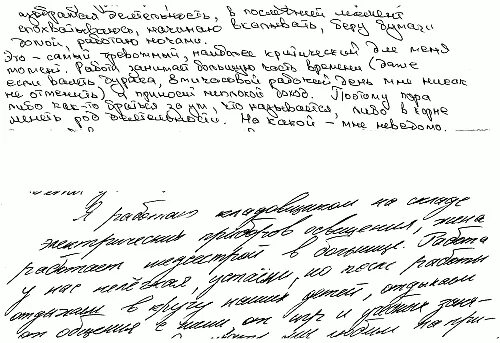 деятельность, в последний момент
спохватываюсь, начинаю вкалывать, беру бумаги
домой, работаю ночами.
Это – самый тревожный, наиболее критический для меня
момент. Работа занимает большую часть времени (даже
если валять дурака, 8 часовой рабочий день мне никак
не отменить) и приносит неплохой доход. Поэтому пора
либо как-то браться за ум, что называется, либо в корне
менять род деятельности. На какой – мне неведомо.
Я работаю кладовщиком на складе
электрических приборов освещения, жена
работает медсестрой в больнице. Работа
у нас нелёгкая, устаём, но после работы
отдыхаем в кругу наших детей, отдыхаем
от общения с ними от игр и
любим на при-